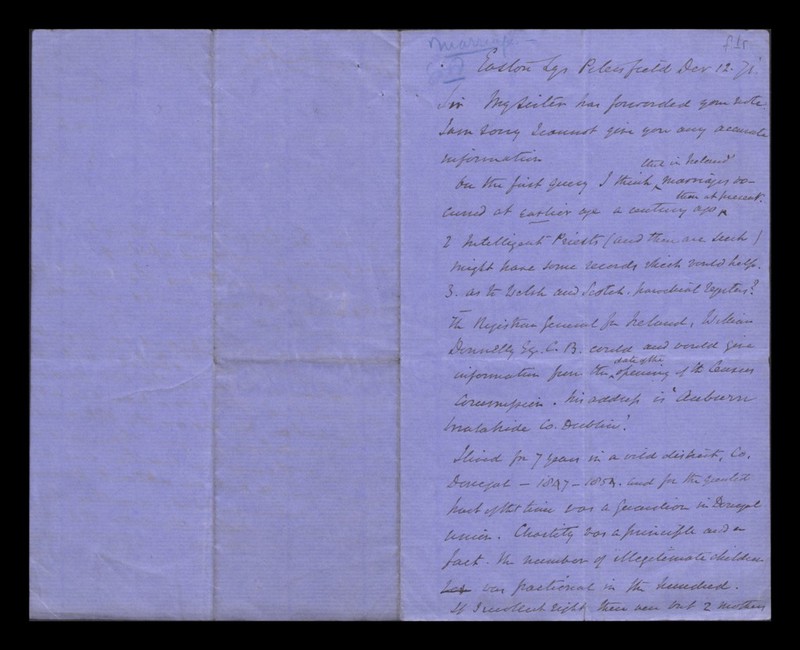 f.1r
Marriage
Easton Lys Petersfield Dec 12. 71.
Sir My Sister has forwarded your note.
I am sorry I cannot give you any accurate
information
On the first query I think that in Ireland marriages oc-
curred at earlier age a century ago than at present.
2 Intelligent Priests (and there are such)
might have some records which would help.
3. as to Welsh and Scotch. parochial registers?
The Registrar General for Ireland, William
Donnelly Esq. C. B. could and would give
information from the date of the opening of the Census
Commission. his address is "Auburn
Malahide Co. Dublin".
I lived for 7 years in a wild district, Co.
Donegal – 1847–1854. and for the greatest
part of that time was a Guardian in Donegal
Union. Chastity was a principle and a
fact. The number of illegitimate children
was fractional in the hundred.
If I recollect right there were but 2 mothers